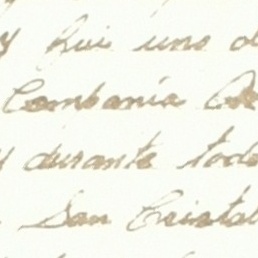 y fui uno d
Compania
y durante tod
San Cristob